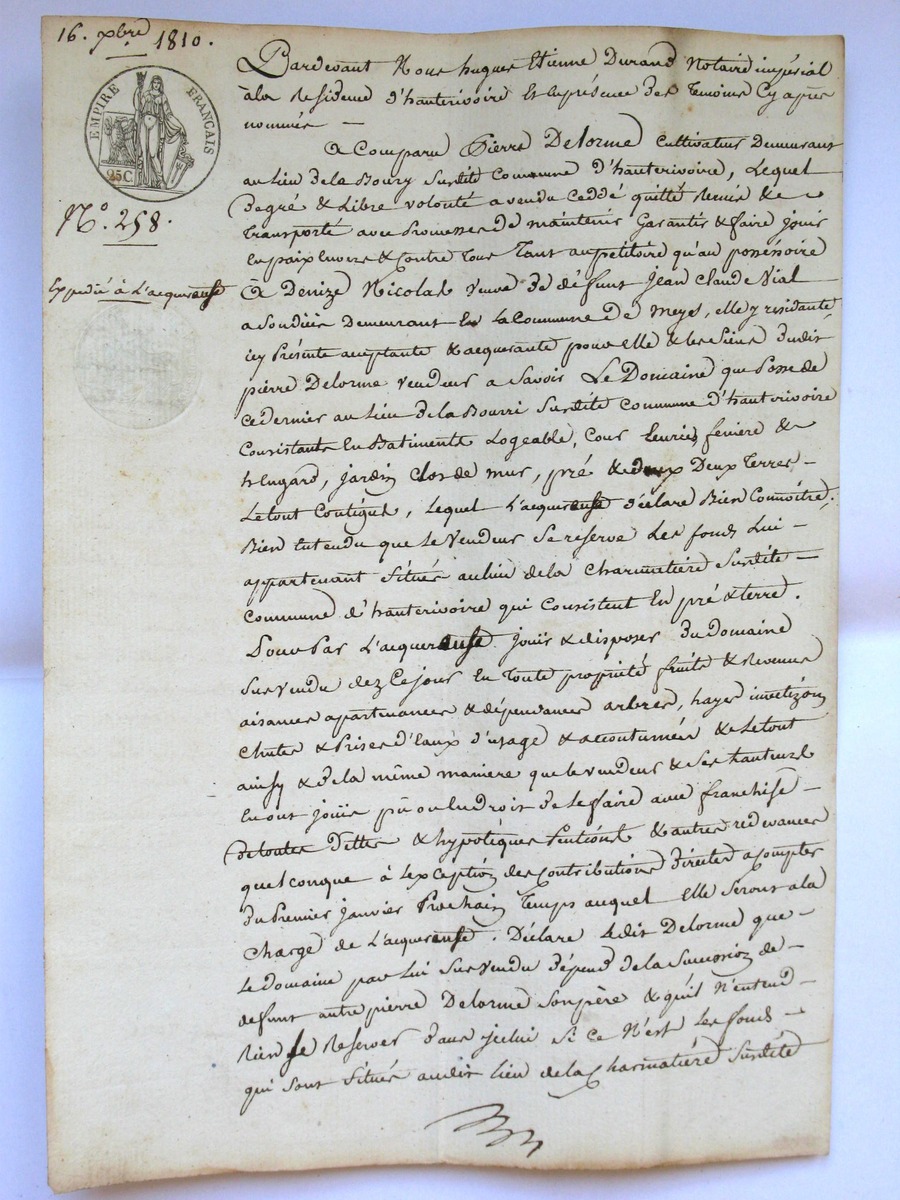 16. xbre 1810.
EMPIRE FRANÇAIS
25C.
N.º 258.
Expedié à L'acquereuse
Pardevant Nous hugues Etienne Durand Notaire impérial
à la Residence d'hauterivoire Et en présence des temoins Cy après
nommés —
A Comparu Pierre Delorme Cultivateur Demeurant
au Lieu de la Boury Susdite Commune d'hauterivoire, Lequel
De gré & Libre volonté a vendu Ceddé quitté Remis &
transporté avec Promesses de maintenir Garantir & faire jouir
En paix Envers & Contre Tous Tant au petitoire qu'au possessoire
A Denize Nicolas Veuve de défunt Jean Claude Vial
Demeurant En La Commune De Meys, elle y residante
icy Présente acceptante & acquerante pour elle & les Siens Dudit
pierre Delorme vendeur a Savoir Le Domaine que Possede
ce dernier au Lieu de la Bourri Susdite Commune d'hauterivoire
Consistant En Batiments Logeable, Cour Ecurie, feniere &
hengard, jardin Clos de mur, pré & Deux Terres —
Le tout Contigue, Lequel L'acquereuse déclare Bien Connoitre;
Bien Entendu que Le Vendeur Se reserve Les fonds Lui —
appartenant Situés au lieu de la Charmetière Susdite —
Commune d'hauterivoire qui Consistent En pré & terre.
Pour Par L'acquereuse jouir & disposer Du Domaine
Sus vendu dez Ce jour En Toute propriété fruits & Revenus
aisances apartenances & dépendances arbres, hayes
Chutes & Prises d'Eaux d'usage & accoutumés & Le tout
ainsy & de la même maniere que le vendeur & Ses hauteurs
En ont jouis pû ou Eu droit de Le faire avec franchise —
De toutes Dettes & hypotèques Pentions & autres redevances
quelconque à L'exception des Contributions directes a Compter
Du Premier janvier Prochain Temps auquel Elle Seront a la
Charge de L'acquereuse. Déclare Ledit Delorme que —
Le domaine par Lui Sus vendu dépend de la Sucession de —
defunt autre pierre Delorme Son père & qu'il N'entend —
Rien Se Reserver dans jcelui Si Ce N'est Les fonds —
qui Sont Situés audit Lieu de la Charmatière Susdite